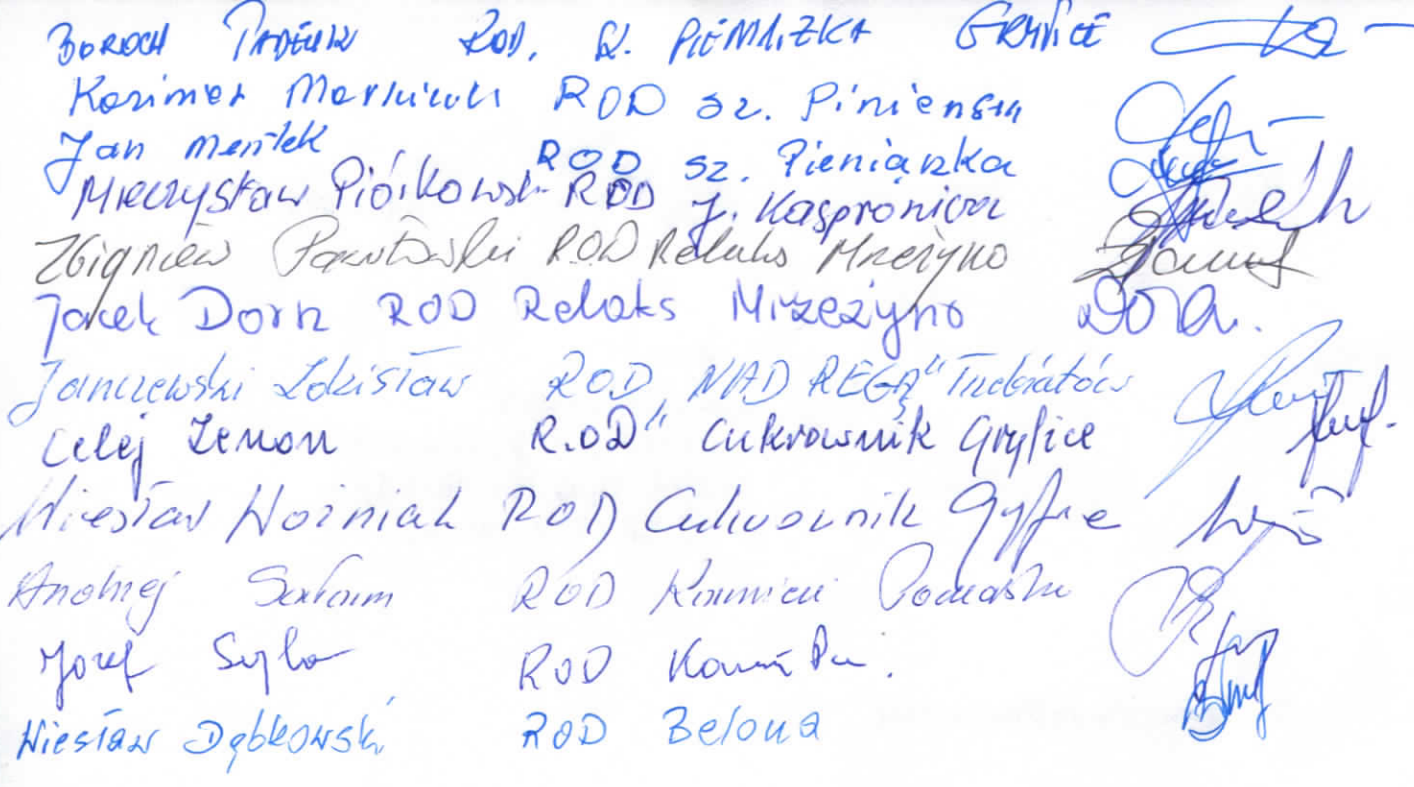 BOROCH TADEUSZ ROD. SZ. PIENIĄZKA GRYFICE
Kazimierz ROD sz.
Jan Mentek ROD sz. Pieniązka
Mieczysław Piórkowski ROD J. Kasprowicza
Zbigniew Pawłowski ROD Relaks Mrzeżyno
Jacek Dorn ROD Relaks Mrzeżyno Dorn.
Janczewski Zdzisław ROD „NAD REGĄ" Trzebiatów
Celej Zenon R.OD" Cukrownik Gryfice
Wiesław Woźniak ROD Cukrownik Gryfice
Andrzej ROD Kamień Pomorski
Józef ROD Kamień Pom.
Wiesław Dąbkowski ROD Belona